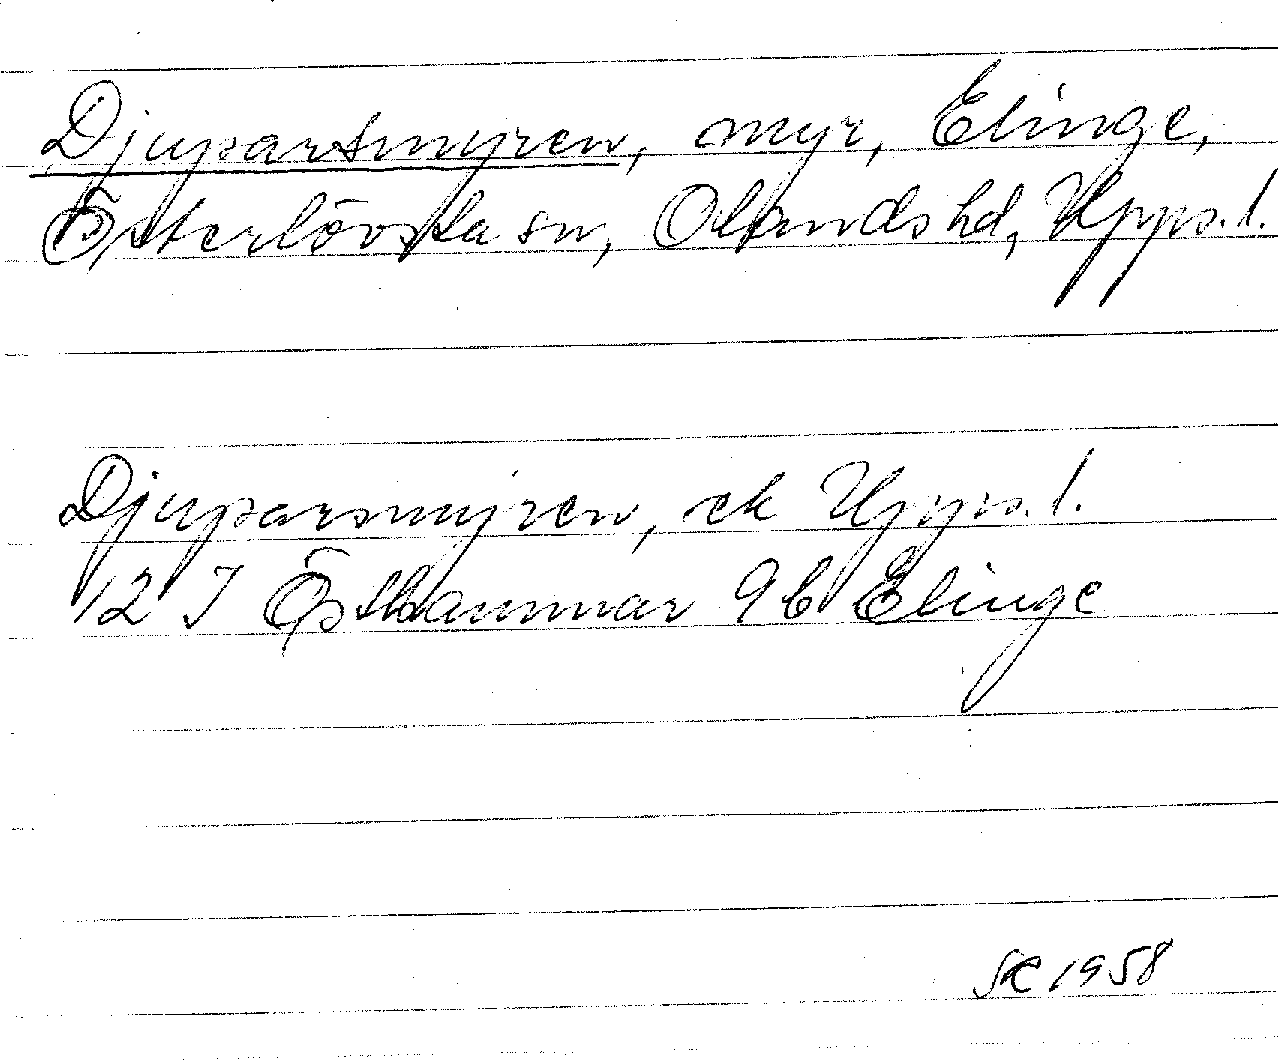 Djuparsmyren, myr, Elinge,
Österlövsta sn, Olands hd, Upps. l.
Djuparsmyren, ek Upps. l.
12 I Östhammar 9b Elinge
SK 1958